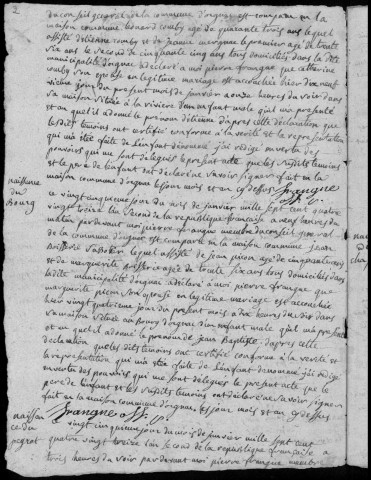 2
du conseil general de la commune d'orgnac est comparu en la
maison commune Léonard comby age de quarante trois ans lequel
assisté d'étienne comby et de jeanne mergnac le premier agé de trente
six ans le second de cinquante cinq ans tous domiciliés dans la ditte
municipalité d'orgnac a declaré a moi pierre frangne que catherine
comby son epouse en legitime mariage est accouchée hier dix neuf
jour du present mois de janvier a onze heures du soir dans
sa maison située a la riviere d'un enfant male qu'il m'a presenté
et au quel il a donné le prenom d'étienne d'apres cette declaration que
lesdits temoins ont certifié conforme a la verité et la representation
qui m'a eté faite de l'enfant denommé, j'ai redigé en vertu des
pouvoirs qui me sont delegués le present acte que les susdits temoins
et le pere de l'enfant ont declaré ne savoir signer fait en la
maison commune d'orgnac les jour mois et an cy dessus frangne off. p.
naissance
du
Bourg
ce vingt cinquieme jour du mois de janvier mille sept cent quatre
vingt treize l'an second de la republique française a neuf heures du
matin par devant moi pierre frangne membre du conseil general
de la commune d'orgnac est comparu en la maison commune jean
lequel assisté de jean pinon agé de cinquante ans
et de marguerite agée de trente six ans tous domiciliés dans
laditte municipalité d'orgnac a declaré a moi pierre frangne que
marguerite son epouse en legitime mariage est accouchée
hier vingt quatrieme jour du present mois a dix heures du soir dans
sa maison située au bourg d'orgnac d'un enfant male qu'il m'a presenté
et au quel il a donné le prenom de jean Baptiste. d'apres cette
declaration que lesdits temoins ont certifié conforme a la verité et
la representation qui m'a eté faite de l'enfant denommé j'ai redigé
en vertu des pouvoirs qui me sont delegués le present acte que le
pere de l'enfant et les susdits temoins ont declaré ne savoir signer
fait en la maison commune d'orgnac les jour mois et an cy dessus
frangne off. p.
naissan
ce du
pegrot
ce vingt cinquieme jour du mois de janvier mille sept cent
quatre vingt treize l'an second de la republique française a
trois heures du soir par devant moi pierre frangne membre